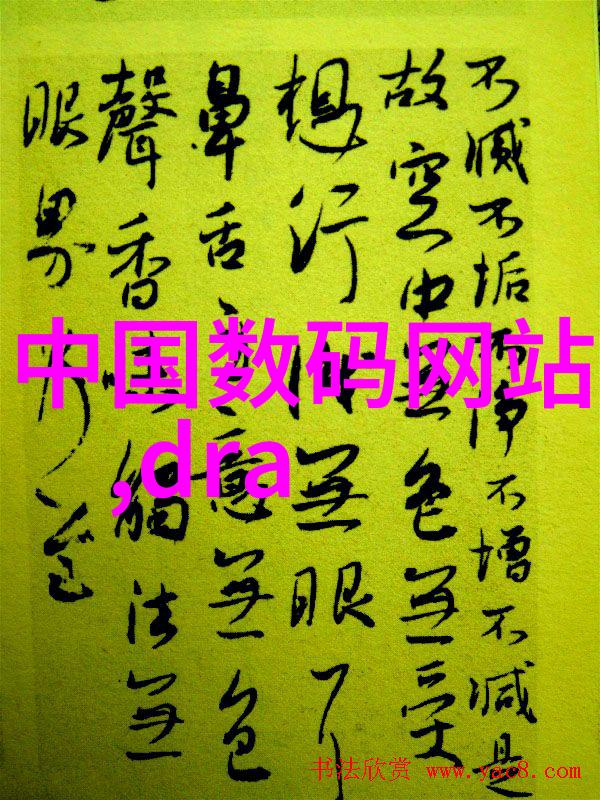 不滅不垢不淨不增不減是
故空中無色無受
想行識無眼耳
鼻舌身意無色
聲香味觸法無
眼界乃至
中国数码网站
,dra
书法欣赏 www.yac8.com